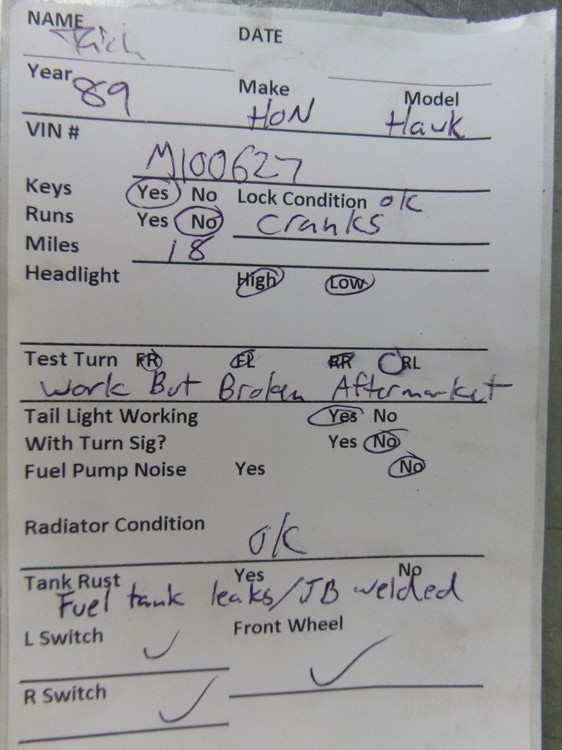 NAME Rich DATE
Year 89 Make HON Model Hawk
VIN # M100627
Keys Yes No Lock Condition ok
Runs Yes No Cranks
Miles 18
Headlight High Low
Test Turn FR FL RR RL
Work But Broken Aftermarket
Tail Light Working Yes No
With Turn Sig? Yes No
Fuel Pump Noise Yes No
Radiator Condition OK
Tank Rust Yes No
Fuel tank leaks/JB welded
L Switch ✓ Front Wheel ✓
R Switch ✓